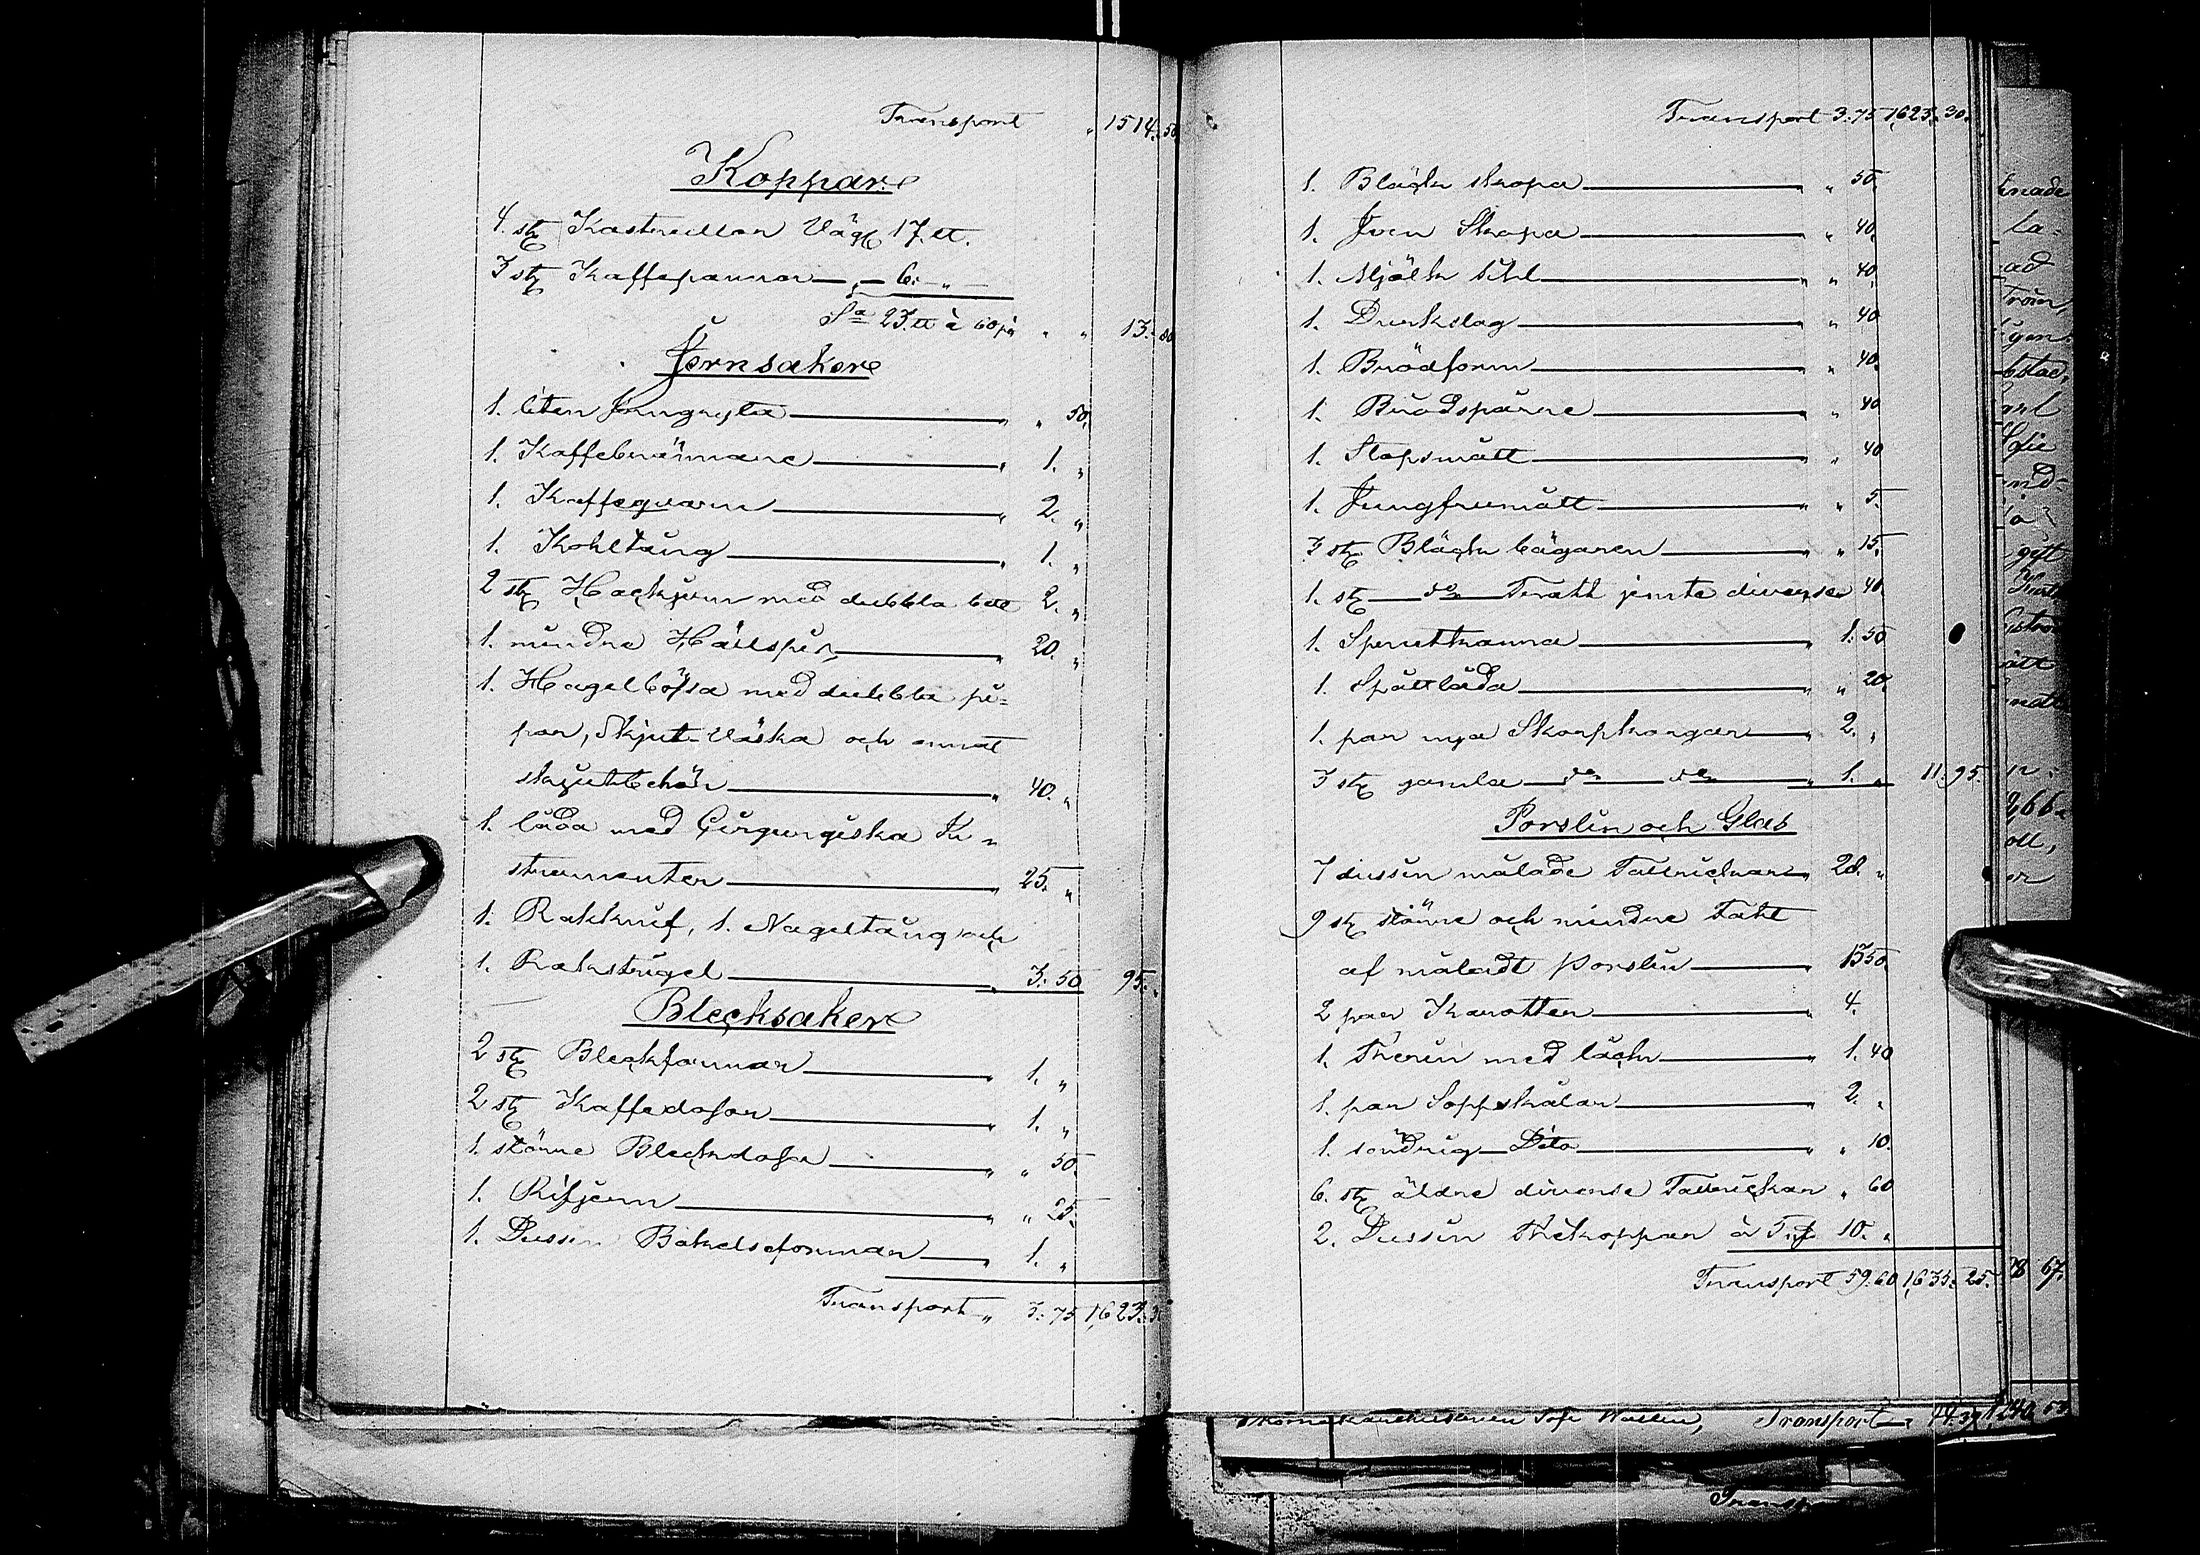 Transport " 1514. 50
Koppar
4. st Kastruller Väg 17. ℔.
3 st Kaffepannor — " — 6. — " —
Sa 23. ℔ à 60 pi " " 13. 80
Jernsaker
1. liten Jerngryta " " 50.
1. Kaffebrännare " 1. "
1. Kaffequarn " 2. "
1. Kohltång " 1. "
2 st Hackjern med dubbla bett 2. "
1. mindre Hällspis " 20. "
1. Hagelbössa med dubbla pi=
por, Skjut-Väska och annat
skjuttbehör " 40. "
1. låda med Çirgurgiska In=
strumenter " 25. "
1. Rakknif, 1. Nageltång och
1. Rakstrigel " 3. 50 95. "
Blecksaker
2 st Bleckformar " 1. "
2 st Kaffedosor " 1. "
1. större Bleckdosa " " 50.
1. Rifjern " " 25.
1. Dussin Bakelseformar " 1. "
Transport " 3. 75 1,623. 3
Transport 3. 75 1,623. 30.
1. Bläck skopa " " 50.
1. Jern Skopa " " 40.
1. Mjölk sihl " " 40.
1. Durkslag " " 40
1. Brödform " " 40.
1. Brödspåne " 40
1. Stopsmått " 40
1. Jungfrumått " " 5.
3 st Bläck bägaren " " 15.
1. st do Tratt jemte diverse 40.
1. Sprutkanna " 1. 50
1. Spottlåda " " 20.
1. par nya Skorpkorgar 2. "
3 st gamla do do " 1. " 11. 95.
Porslin och Glas
7 dussin målade Tallrickar " 28. "
9 st större och mindre Fatt
af måladt Porslin " 13 50.
2 par Karotter " 4.
1. Therin med låck " 1. 40
1. par Soppskålar " 2. "
1. söndrig Dito " " 10.
6. st äldre diverse Tallrickar " 60
2. Dussin Thekoppar à 5. 10. "
Transport 59. 60 1,635. 25. 78 67.
Transport 44. 1240 53